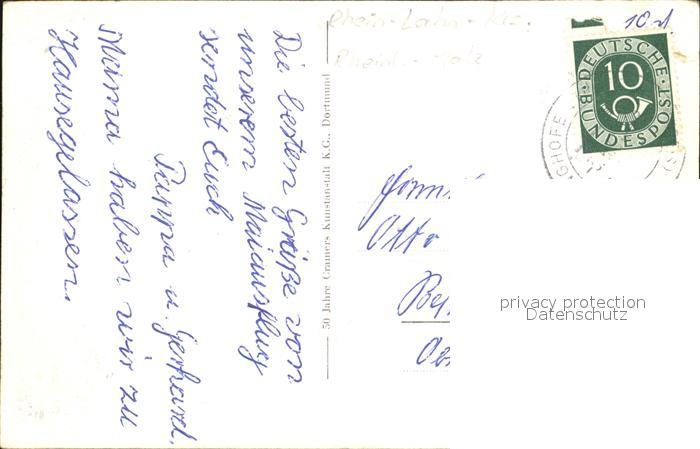 Die besten Grüße von
unserem Maiausflug
sendet Euch
Pappa u. Gerhard.
Mama haben wir zu
Hause gelassen.
50 Jahre Cramers Kunstanstalt K.G., Dortmund
Rhein-Lahn-Krs.
Rheinl.-Pfalz
DEUTSCHE
10
BUNDESPOST
GHOFE
Otto
privacy protection
Datenschutz